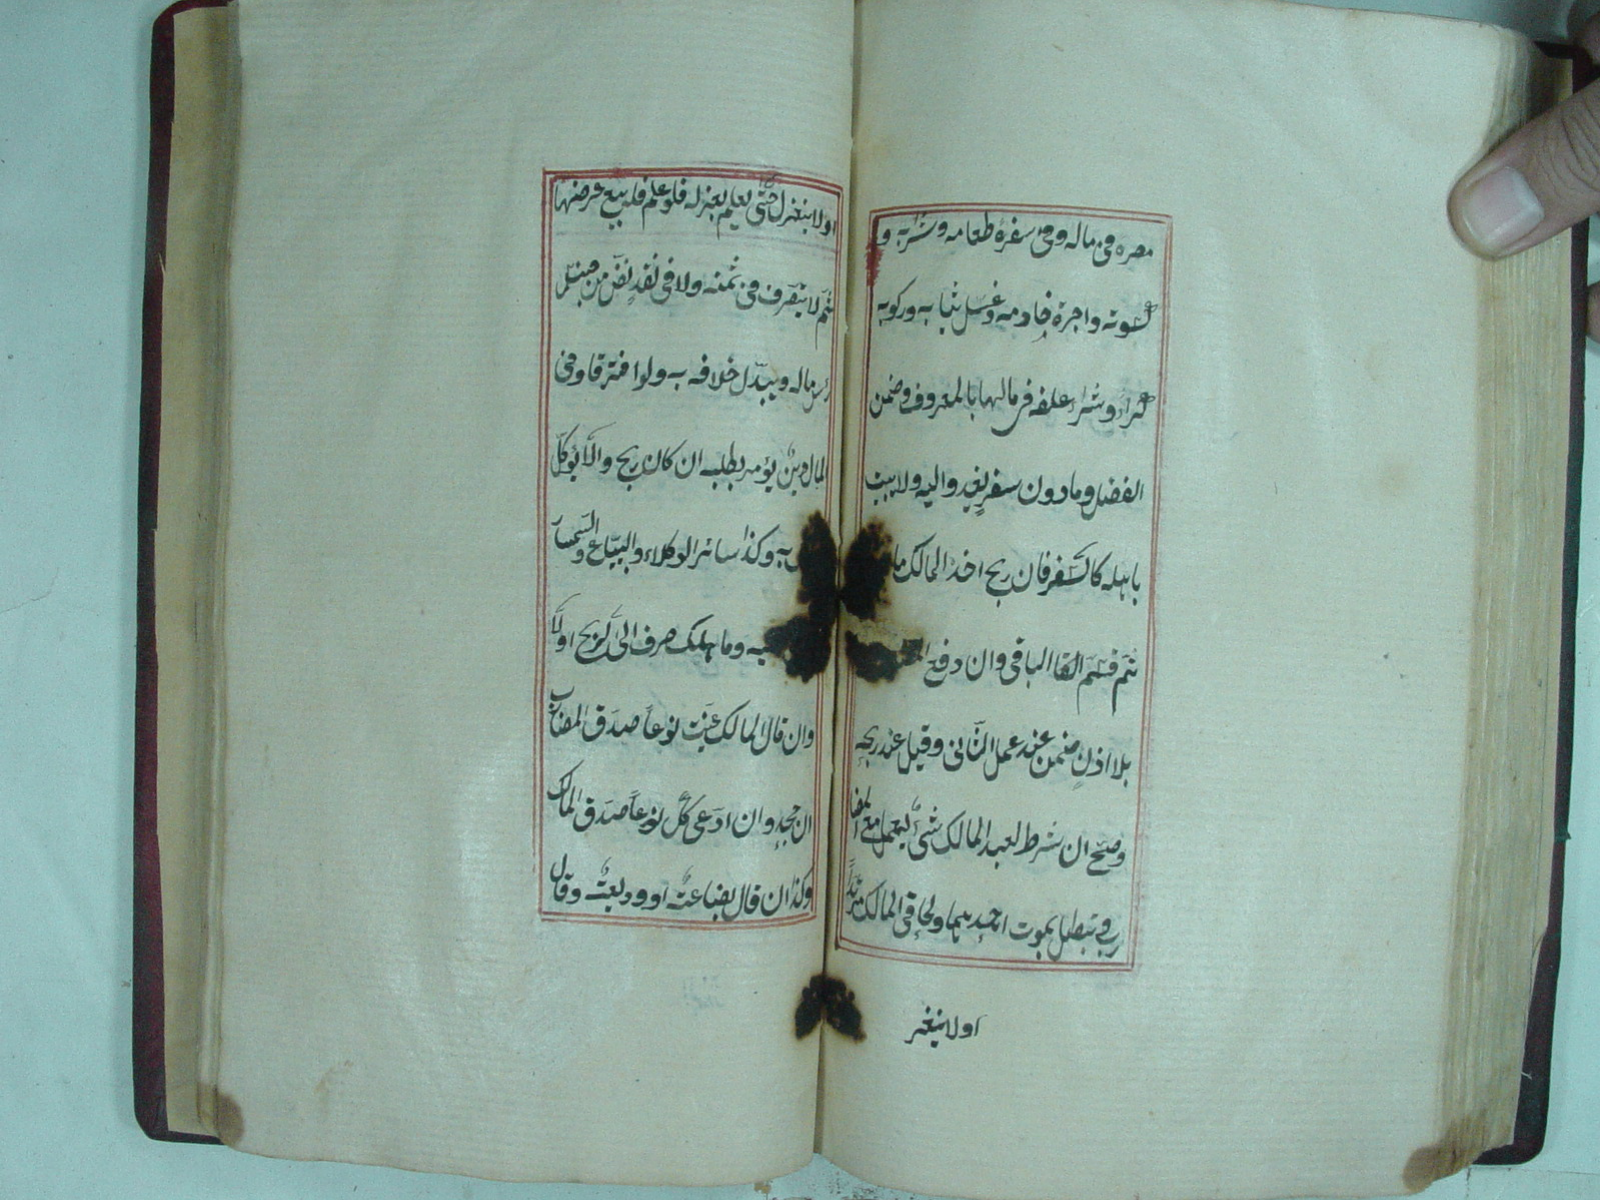 مصره فى ماله وفى سفره طعامه وشرابه و
كسوته واجرة خادمه وغسل ثيابه وركوبه
كراء وشراء وعلفه فى مالها بالمعروف وضمن
الفضل وما دون سفر يغدو اليه ولا يبيت
باهله كالسفر فان ربح اخذ المالك ما
ثم قسم الباقى وان دفع
بلا اذن ضمن عند عمل الثانى وقيل عند ربحه
وصح ان شرط لعبد المالك شئ ليعمل مع المضا
رب وتبطل بموت احدهما ولحاق المالك مرتدا
اولا ينعز
اولا ينعزل حتى يعلم بعزله فلو علم فله بيع عرضها
ثم لا يتصرف فى ثمنه ولا فى نقد نض من جنس
رأس ماله ويبدل خلافه به ولو افترقا وفى
المال دين يؤمر بطلبه ان كان ربح والا يوكل
به وكذا سائر الوكلاء والبياع والسمسار
به وما هلك صرف الى الربح اولا
وان قال المالك عينت نوعا صدق المضارب
ان جحد وان ادعى كل نوعا صدق المالك
وكذا ان قال بضاعة او وديعة وقال